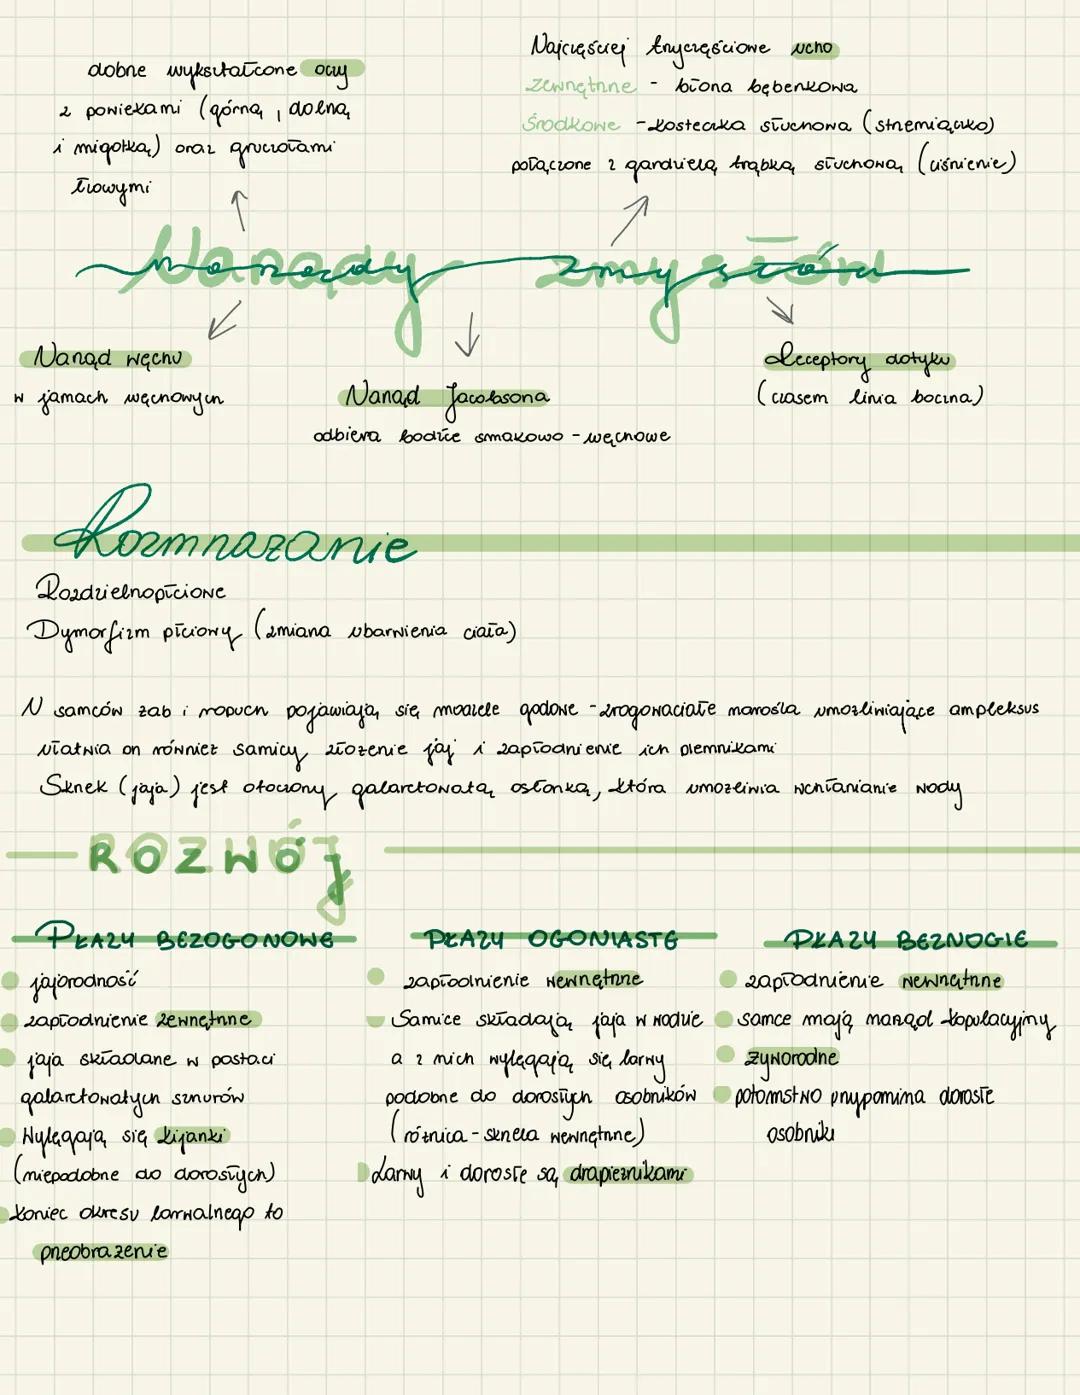 dobrze wykształcone oczy
z powiekami (górną, dolną
i migotką) oraz gruczołami
łzowymi
Najczęściej trzyczęściowe ucho
zewnętrzne - błona bębenkowa
środkowe - kosteczka słuchowa (strzemiączko)
połączone z gardzielą trąbką słuchową (ciśnienie)
Narządy zmysłów
Narząd węchu
w jamach węchowych
Narząd Jacobsona
odbiera bodźce smakowo - węchowe
Receptory dotyku
(czasem linia boczna)
Rozmnażanie
Rozdzielnopłciowe
Dymorfizm płciowy (zmiana ubarwienia ciała)
U samców żab i ropuch pojawiają się modzele godowe - zrogowaciałe narośla umożliwiające ampleksus
ułatwia on również samicy złożenie jaj i zapłodnienie ich plemnikami
Skrzek (jaja) jest otoczony galaretowatą osłonką, która umożliwia wchłanianie wody
ROZWÓJ
PŁAZY BEZOGONOWE
jajorodność
zapłodnienie zewnętrzne
jaja składane w postaci
galaretowatych sznurów
Wylęgają się kijanki
(niepodobne do dorosłych)
koniec okresu larwalnego to
przeobrażenie
PŁAZY OGONIASTE
zapłodnienie wewnętrzne
Samice składają jaja w wodzie
a z nich wylęgają się larwy
podobne do dorosłych osobników
(różnica - skrzela wewnętrzne)
Larwy i dorosłe są drapieżnikami
PŁAZY BEZNOGIE
zapłodnienie wewnętrzne
samce mają narząd kopulacyjny
żyworodne
potomstwo przypomina dorosłe
osobniki